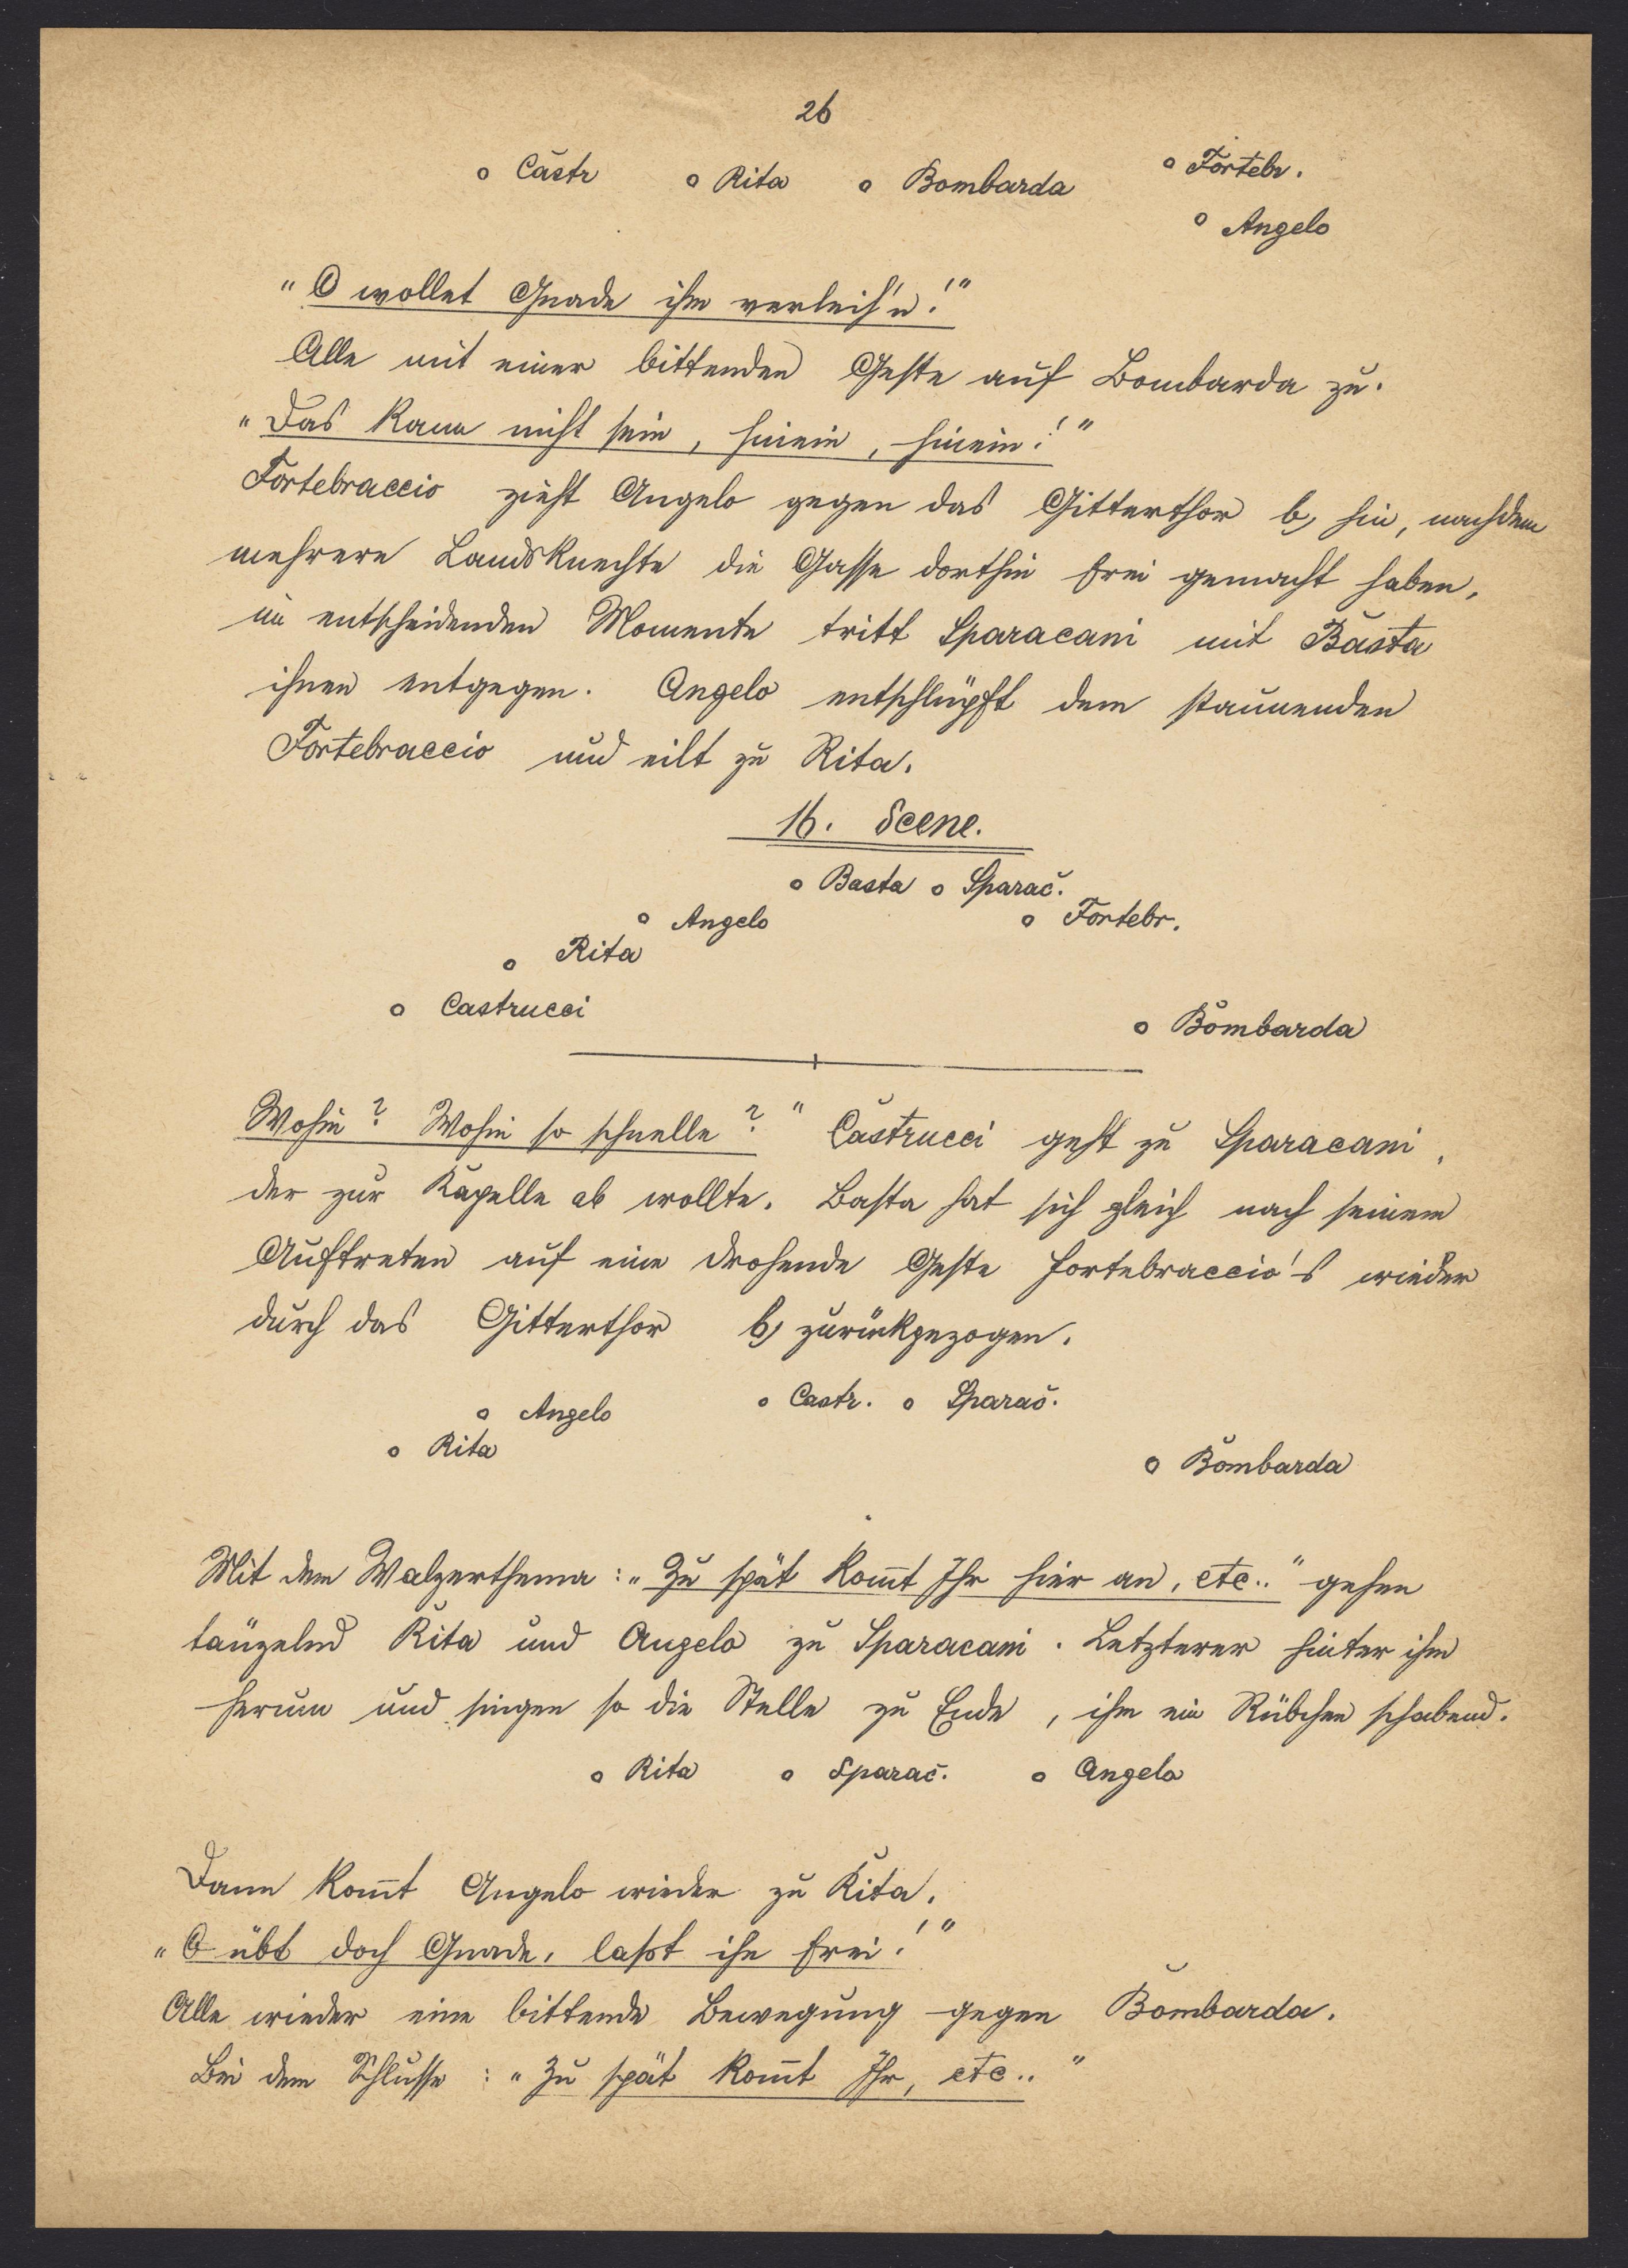 26
o Castr o Rita o Bombarda o Fortebr.
o Angelo
"O wollet Gnade ihm verleih'n!"
Alle mit einer bittenden Geste auf Bombarda zu.
"Das kann nicht sein, hinein, hinein!"
Fortebraccio zieht Angelo gegen das Gitterthor b, hin, nachdem
mehrere Landsknechte die Gasse dorthin frei gemacht haben,
im entscheidenden Momente tritt Sparacani mit Basta
ihnen entgegen. Angelo entschlüpft dem staunenden
Fortebraccio und eilt zu Rita.
16. Scene.
o Basta o Sparac.
o Angelo o Fortebr.
o Rita
o Castrucci
o Bombarda
Wohin? Wohin so schnelle?" Castrucci geht zu Sparacani,
der zur Kapelle ab wollte. Basta hat sich gleich nach seinem
Auftreten auf eine drohende Geste Fortebraccio's wieder
durch das Gitterthor b, zurückgezogen.
o Angelo o Castr. o Sparac.
o Rita
o Bombarda
Mit dem Walzerthema: "Zu spät kom̅t Ihr hier an, etc.." gehen
tänzelnd Rita und Angelo zu Sparacani. Letzterer hinter ihm
herum und singen so die Stelle zu Ende, ihm ein Rübchen schabend.
o Rita o Sparac. o Angelo
Dann kom̅t Angelo wieder zu Rita.
"O übt doch Gnade, laßt ihn frei!"
Alle wieder eine bittende Bewegung gegen Bombarda.
Bei dem Schlusse: "Zu spät kom̅t Ihr, etc.."